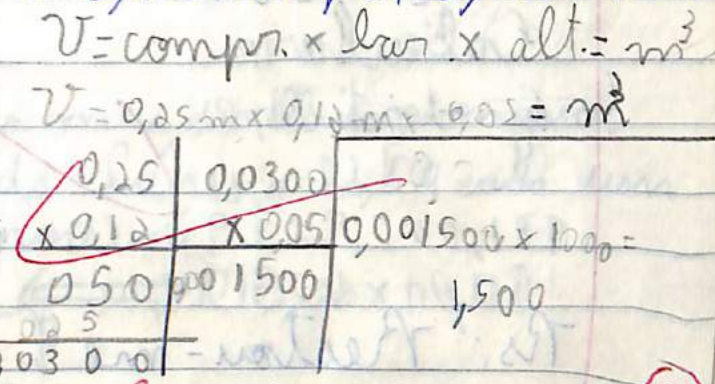 V=compr. x lar. x alt.= m³
V=0,25m x 0,12m x 0,05 = m³
0,25 0,0300
x 0,12 x 0,05 0,001500 x 1000=
050 0,001500 1,500
025
0300